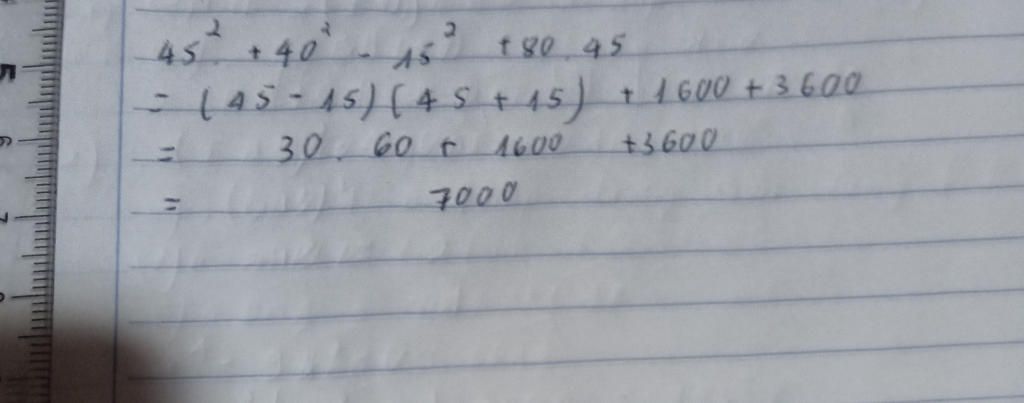 45² + 40² - 15² + 80.45
= (45 - 15)(45 + 15) + 1600 + 3600
= 30. 60 + 1600 + 3600
= 7000
5
6
7